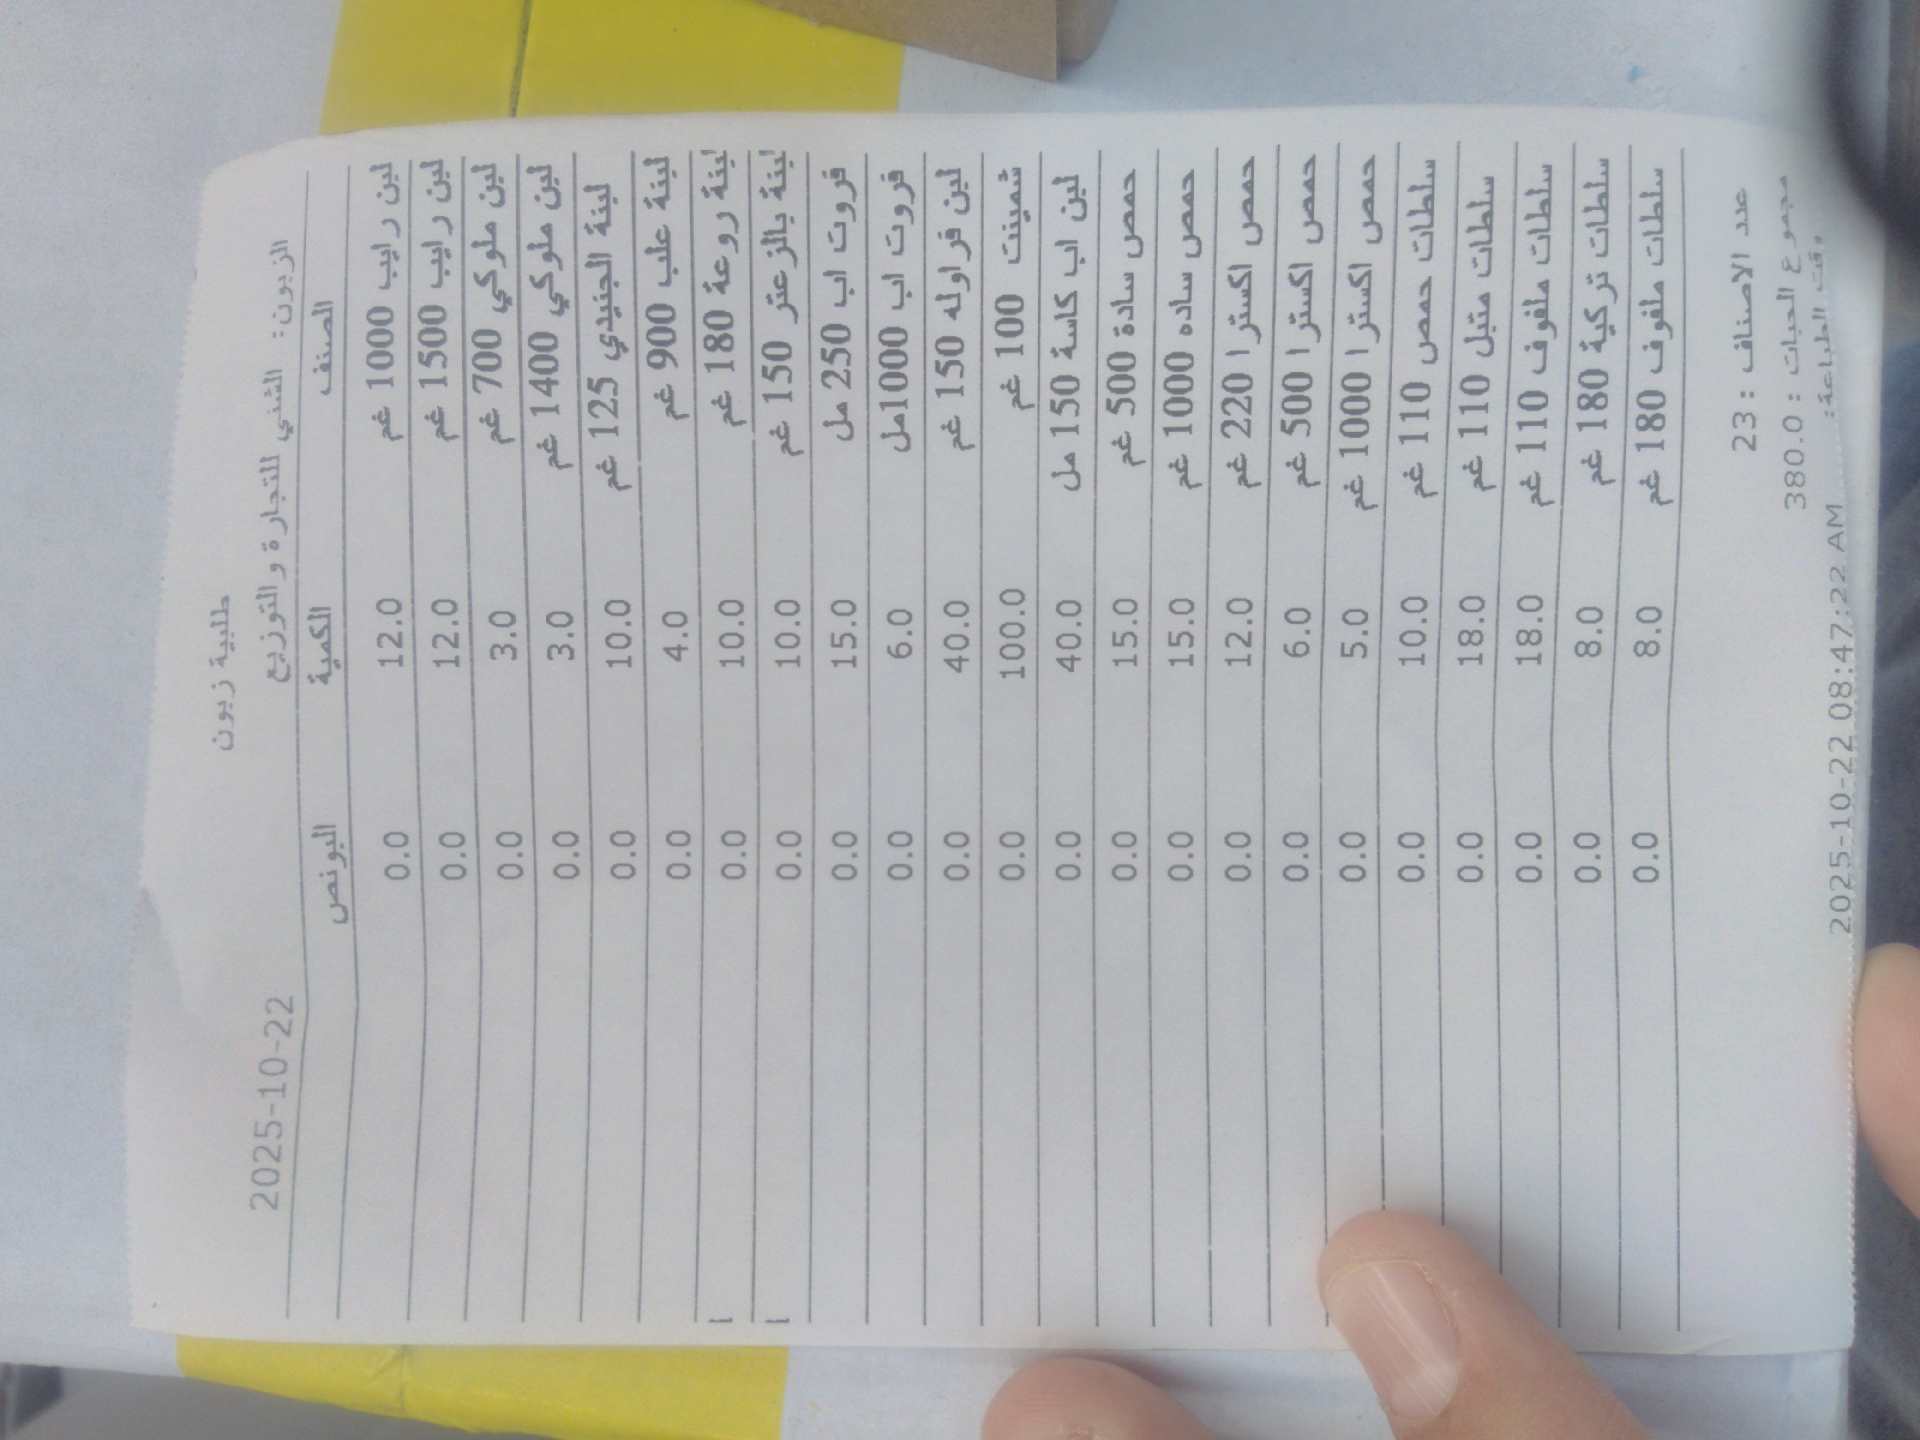 طلبية زبون
الزبون: الشني للتجارة والتوزيع 2025-10-22
الصنف الكمية البونص
لبن رايب 1000 غم 12.0 0.0
لبن رايب 1500 غم 12.0 0.0
لبن ملوكي 700 غم 3.0 0.0
لبن ملوكي 1400 غم 3.0 0.0
لبنة الجنيدي 125 غم 10.0 0.0
لبنة علب 900 غم 4.0 0.0
لبنة روعة 180 غم 10.0 0.0
لبنة بالزعتر 150 غم 10.0 0.0
فروت اب 250 مل 15.0 0.0
فروت اب 1000مل 6.0 0.0
لبن فراوله 150 غم 40.0 0.0
شمينت 100 غم 100.0 0.0
لبن اب كاسة 150 مل 40.0 0.0
حمص سادة 500 غم 15.0 0.0
حمص ساده 1000 غم 15.0 0.0
حمص اكسترا 220 غم 12.0 0.0
حمص اكسترا 500 غم 6.0 0.0
حمص اكسترا 1000 غم 5.0 0.0
سلطات حمص 110 غم 10.0 0.0
سلطات متبل 110 غم 18.0 0.0
سلطات ملفوف 110 غم 18.0 0.0
سلطات تركية 180 غم 8.0 0.0
سلطات ملفوف 180 غم 8.0 0.0
عدد الاصناف : 23
مجموع الحبات : 380.0
وقت الطباعة: 2025-10-22 08:47:22 AM